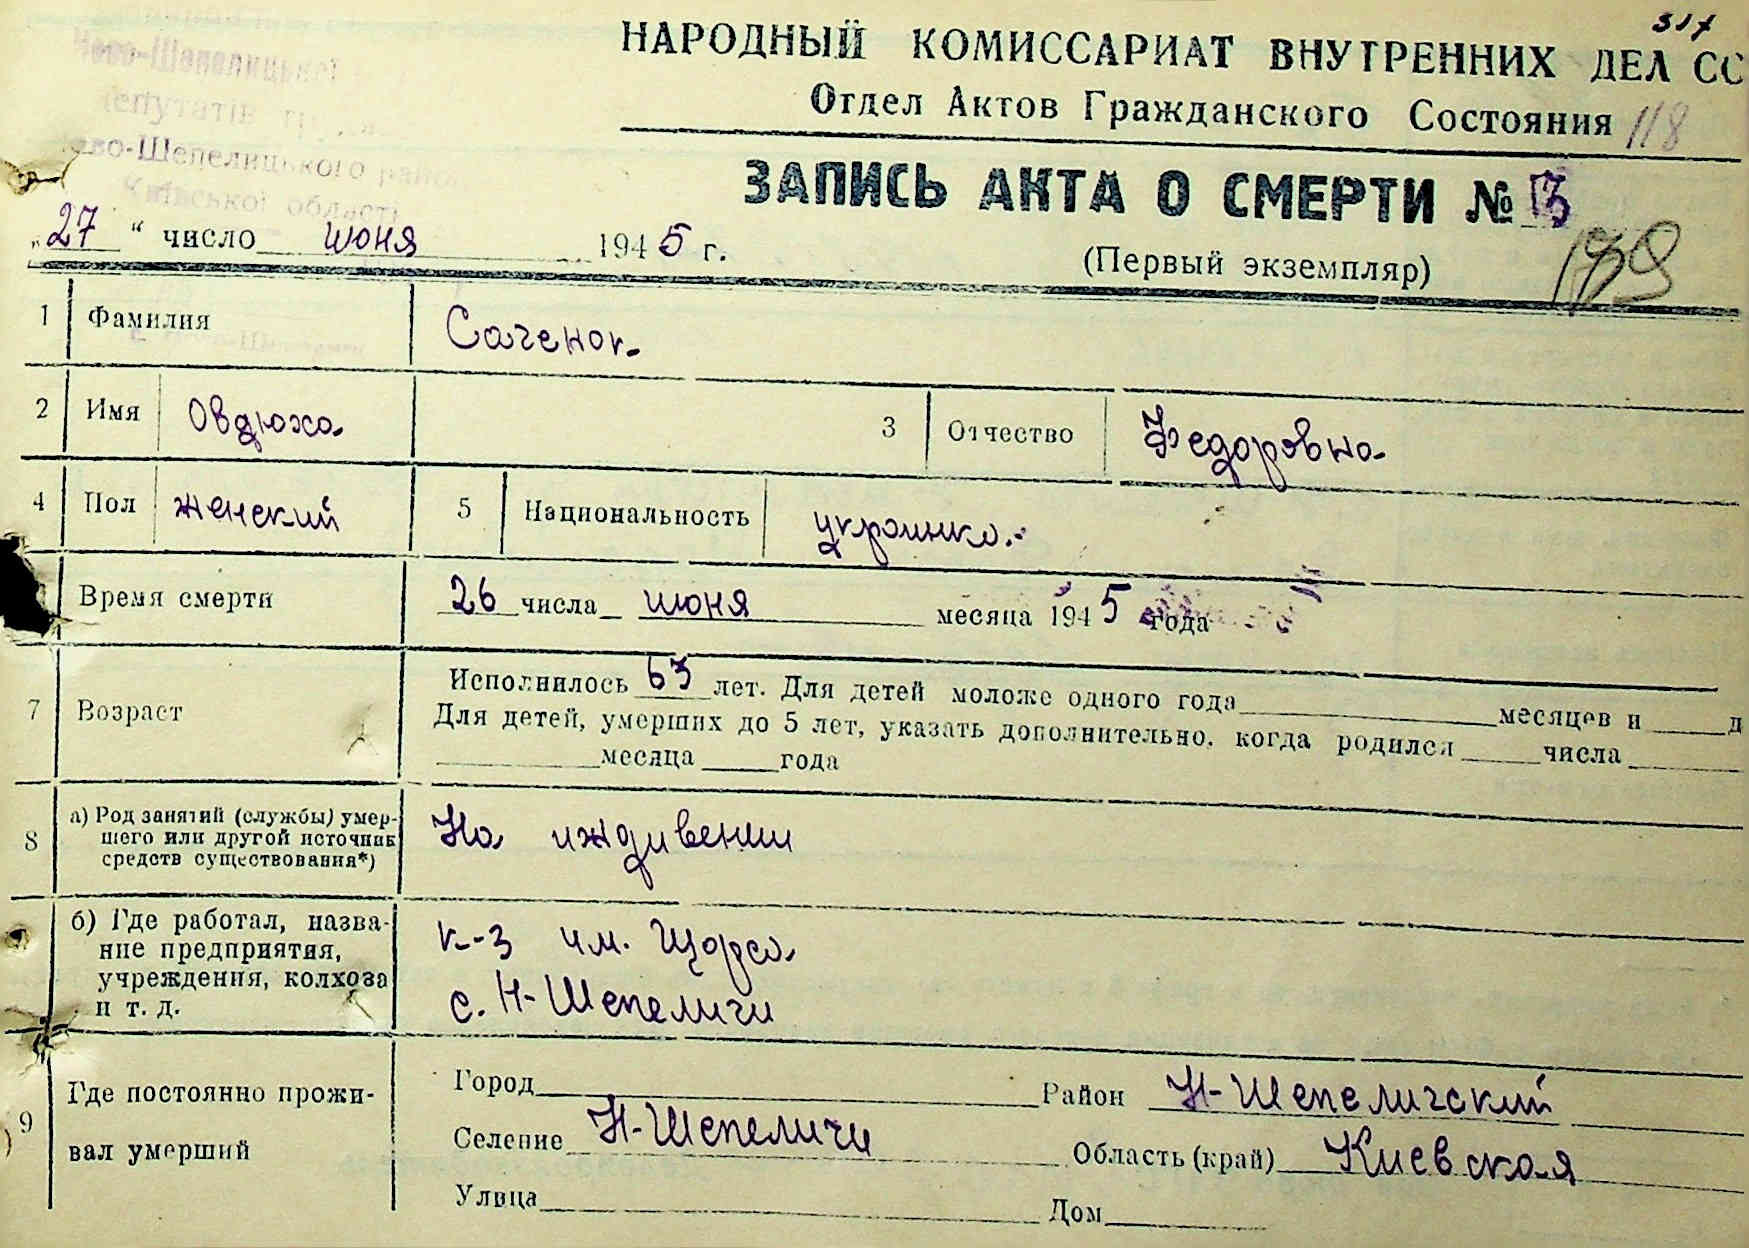 317
НАРОДНЫЙ КОМИССАРИАТ ВНУТРЕННИХ ДЕЛ СС
Отдел Актов Гражданского Состояния 118
Ново-Шепелицької
депутатів
Ново-Шепелицького
Київської області
ЗАПИСЬ АКТА О СМЕРТИ № 13
„27“ число июня 1945 г.
(Первый экземпляр)
1 Фамилия Саченок
2 Имя Овдюха 3 Отчество Федоровна
4 Пол женский 5 Национальность украинка
Время смерти 26 числа июня месяца 1945 года
7 Возраст Исполнилось 63 лет. Для детей моложе одного года месяцев и д
Для детей, умерших до 5 лет, указать дополнительно, когда родился числа
месяца года
8 а) Род занятий (службы) умер-
шего или другой источник
средств существования*)
На иждивении
б) Где работал, назва-
ние предприятия,
учреждения, колхоза
и т. д.
к-з им. Щорса
с. Н-Шепеличи
9 Где постоянно прожи-
вал умерший
Город Район Н-Шепеличский
Селение Н-Шепеличи Область (край) Киевская
Улица Дом